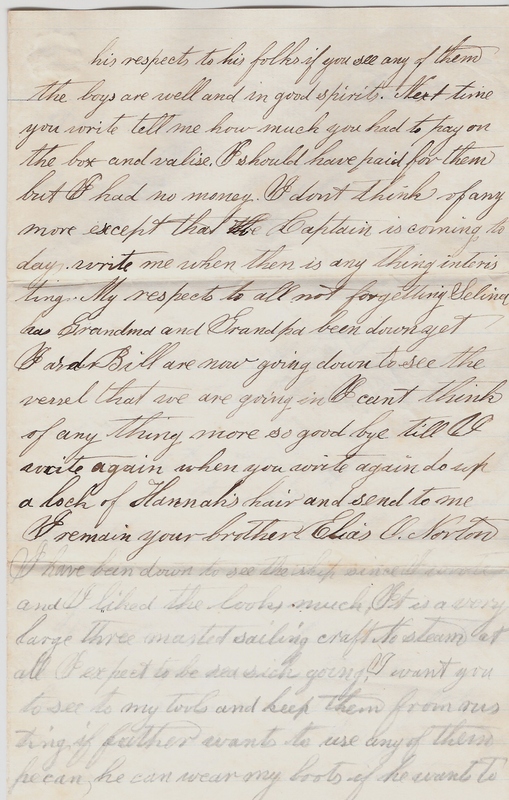 his respects to his folks if you see any of them
the boys are well and in good spirits. Next time
you write tell me how much you had to pay on
the box and valise. I should have paid for them
but I had no money. I dont think of any
more except that the Captain is coming to
day. write me when then is any thing interis
ting. My respects to all not forgetting Selina
has Grandma and Grandpa been down yet
I and Bill are now going down to see the
vessel that we are going in I cant think
of any thing more so good bye till I
write again when you write again do up
a lock of Hannah's hair and send to me
I remain your brother Elias O. Norton
I have been down to see the ship since I wrote
and I liked the looks much, It is a very
large three masted sailing craft. No steam at
all I expect to be sea sick going. I want you
to see to my tools and keep them from rus
ting, if father wants to use any of them
he can, he can wear my boots if he wants to